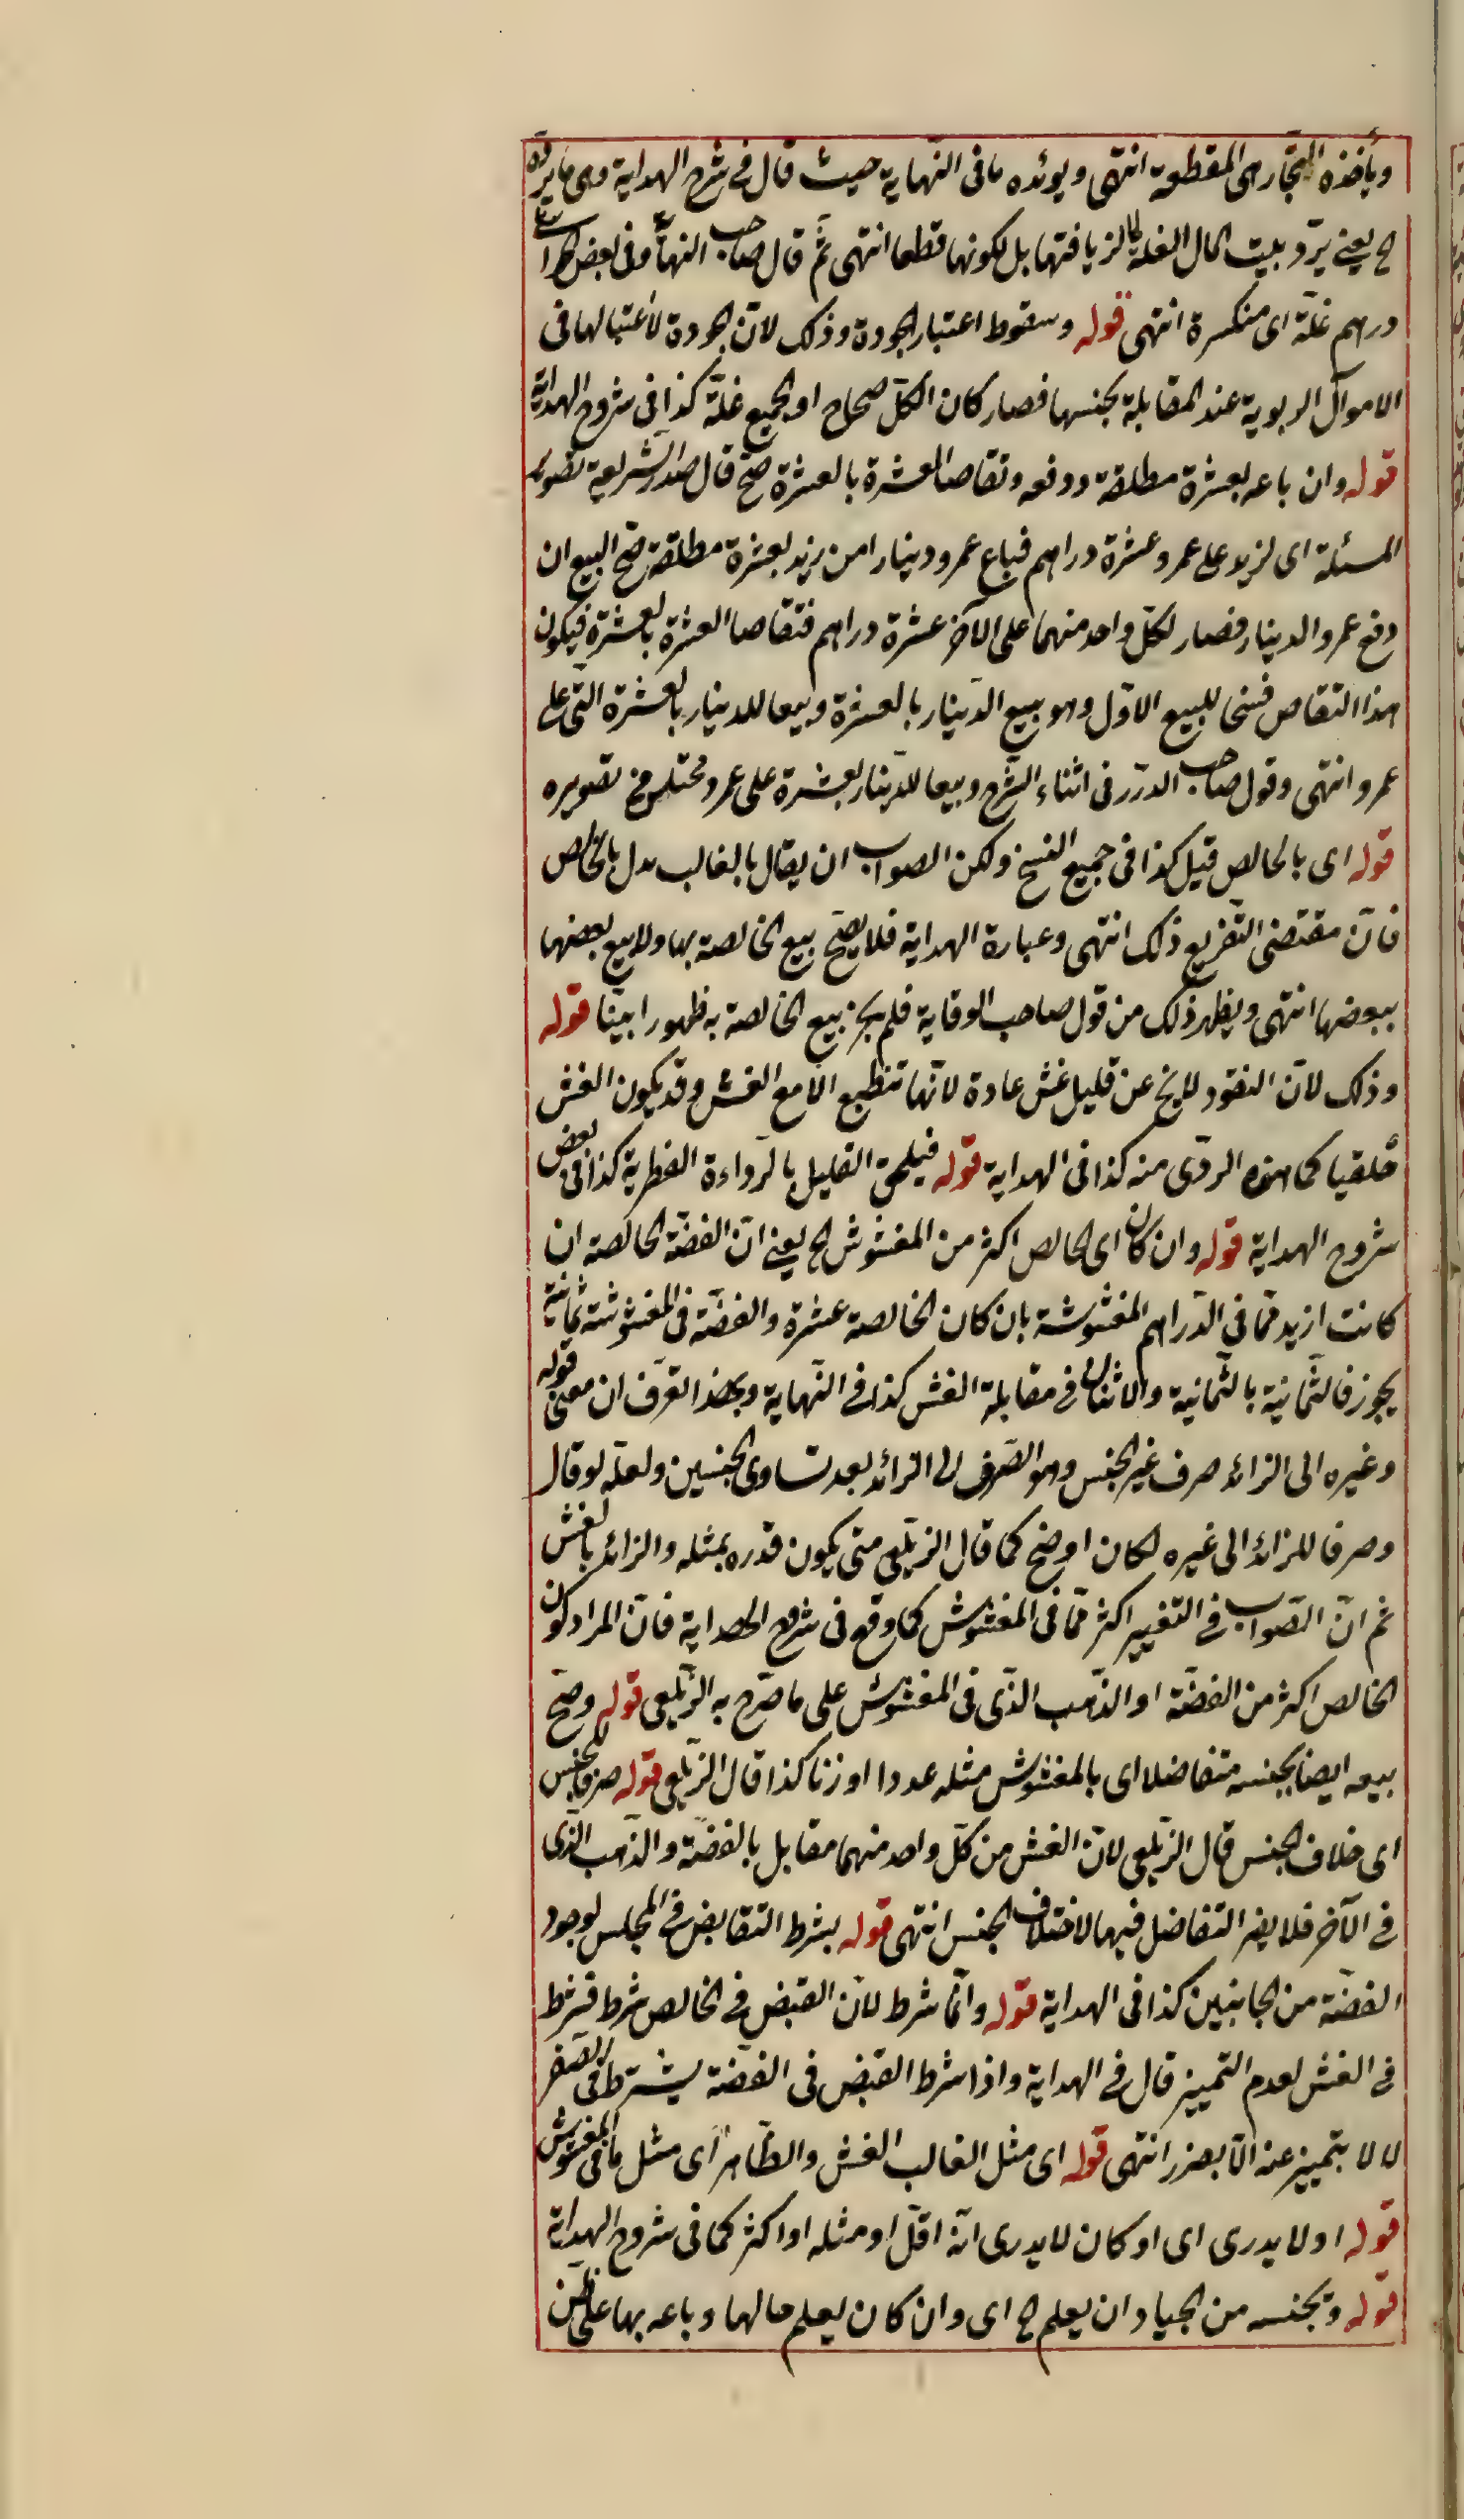 ويأخذه التجار هى المقطعة انتهى ويؤيده ما فى النهاية حيث قال فى شرح الهداية وهى ما يرده
الخ يعنى يرد بيت المال الغلة لا لزيافتها بل لكونها قطعا انتهى ثم قال صاحب النهاية وفى بعض
دراهم غلة اى منكسرة انتهى قوله وسقوط اعتبار الجودة وذلك لان الجودة لا اعتبار لها فى
الاموال الربوية عند المقابلة بجنسها فصار كان الكل صحاح او الجميع غلة كذا فى شروح الهداية
قوله وان باعه بعشرة مطلقة ودفعه وتقاصا العشرة بالعشرة صح قال صدر الشريعة تصوير
المسئلة اى لزيد على عمرو عشرة دراهم فباع عمرو دينارا من زيد بعشرة مطلقة صح البيع ان
دفع عمرو الدينار فصار لكل واحد منهما على الآخر عشرة دراهم فتقاصا العشرة بالعشرة فيكون
هذا التقاص فسخا للبيع الاول وهو بيع الدينار بالعشرة وبيعا للدينار بالعشرة التى على
عمرو انتهى وقول صاحب الدرر فى اثناء الشرح وبيعا للدينار بعشرة على عمرو مختلس من تصويره
قوله اى بالخالص قيل كذا فى جميع النسخ ولكن الصواب ان يقال بالغالب بدل بالخالص
فان مقتضى التفريع ذلك انتهى وعبارة الهداية فلا يصح بيع الخالصة بها ولا بيع بعضها
ببعضها انتهى ويظهر ذلك من قول صاحب الوقاية فلم يجز بيع الخالصة به ظهورا بينا قوله
وذلك لان النقود لا يخ عن قليل غش عادة لانها تنطبع الا مع الغش وقد يكون الغش
خلقيا كما هذه الردى منه كذا فى الهداية قوله فيلحق القليل بالرداءة الفطرية كذا فى بعض
شروح الهداية قوله وان كان اى الخالص اكثر من المغشوش الخ يعنى ان الفضة الخالصة ان
كانت ازيد مما فى الدراهم المغشوشة بان كان الخالصة عشرة والفضة فى المغشوشة ثمانية
يجوز فالثمانية بالثمانية والاثنان فى مقابلة الغش كذا فى النهاية وبهذا تعرف ان معنى قوله
وغيره الى الزائد صرف غير الجنس وهو الصرف الى الزائد بعد تساوى الجنسين ولعله لو قال
وصرفا للزائد الى غيره لكان اوضح كما قال الزيلعى متى يكون قدره بمثله والزائد بالغش
ثم ان الصواب فى التفسير اكثر مما فى المغشوش كما وقع فى شروح الهداية فان المراد كون
الخالص اكثر من الفضة او الذهب الذى فى المغشوش على ما صرح به الزيلعى قوله وصح
بيعه ايضا بجنسه متفاضلا اى بالمغشوش مثله عددا او زنا كذا قال الزيلعى قوله صرفا للجنس
اى خلاف الجنس قال الزيلعى لان الغش من كل واحد منهما مقابل بالفضة والذهب الذى
فى الآخر فلا يضر التفاضل فيها لاختلاف الجنس انتهى قوله بشرط التقابض فى المجلس لوجود
الفضة من الجانبين كذا فى الهداية قوله وانما شرط لان القبض فى الخالص شرط فشرط
فى الغش لعدم التمييز قال فى الهداية واذا شرط القبض فى الفضة يشترط فى الصفر
لا لا يتميز عنه الا بضرر انتهى قوله اى مثل الغالب الغش والظاهر اى مثل ما فى المغشوش
قوله او لا يدرى اى او كان لا يدرى انه اقل او مثله او اكثر كما فى شروح الهداية
قوله وبجنسه من الجياد ان يعلم الخ اى وان كان يعلم حالها وباعه بها على ظن